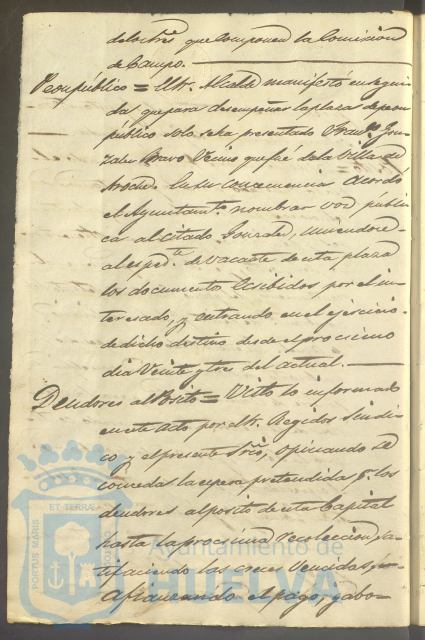 de los tres que componen la Comision
de Campo.
Peon público = El Sr. Alcalde manifestó en segui-
das que para desempeñar la plaza de peon
público solo se ha presentado Franco. Gon-
zalez Bravo Vecino que fué de la Villa de
Aroche. En su consecuencia acordó
el Ayuntamto. nombrar voz públi-
ca al citado Gonzalez, uniendose
al espedte. de vacante de esta plaza
los documentos exibidos por el in-
teresado, y entrando en el ejercicio
de dicho destino desde el procsimo
dia Veinte y tres del actual.
Deudores al Pósito = Visto lo informado
en este acto por el Sr. Regidor Sindi-
co y el presente Srio, opinando se
conceda la espera pretendida pr. los
deudores al posito de esta Capital
hasta la procsima recoleccion, sa-
tisfaciendo las creces vencidas, y
afianzando el pago, y abo-
PORTUS MARIS
ET TERRAE
Ayuntamiento de
HUELVA